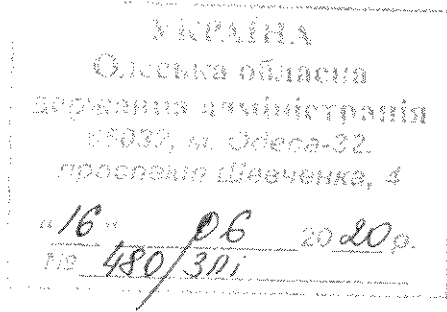 УКРАЇНА
Одеська обласна
державна адміністрація
65032, м. Одеса-32.
проспект Шевченка, 4
"16" 06 2020 р.
№ 480/ЗПі